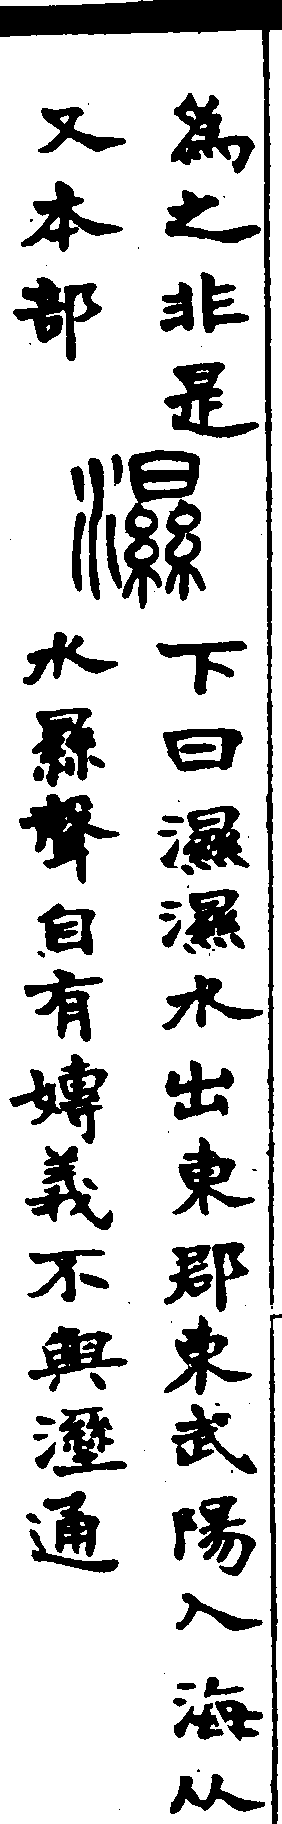 為之非是
又本部
濕
下曰濕濕水出東郡東武陽入海从
水㬎聲自有嫥義不與溼通